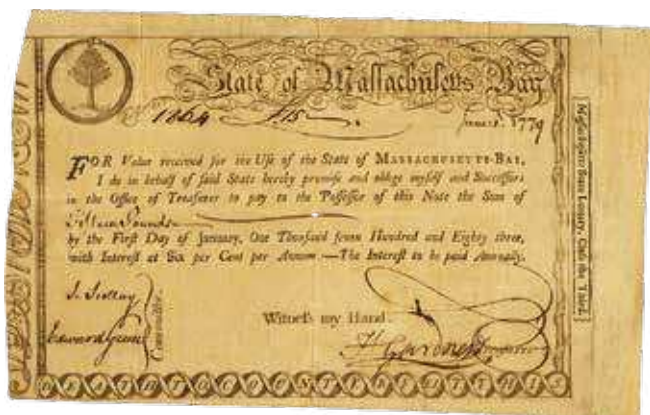 State of Massachusetts Bay
1864 £15 June 1. 1779
FOR Value received for the Use of the State of MASSACHUSETTS-BAY,
I do in behalf of said State hereby promise and oblige myself and Successors
in the Office of Treasurer to pay to the Possessor of this Note the Sum of
Fifteen Pounds
by the First Day of January, One Thousand seven Hundred and Eighty three,
with Interest at Six per Cent per Annum.—The Interest to be paid Annually.
Edward Green
Committee.
Witness my Hand
H Gardner Treasurer
Massachusetts State Lottery, Class the Third.